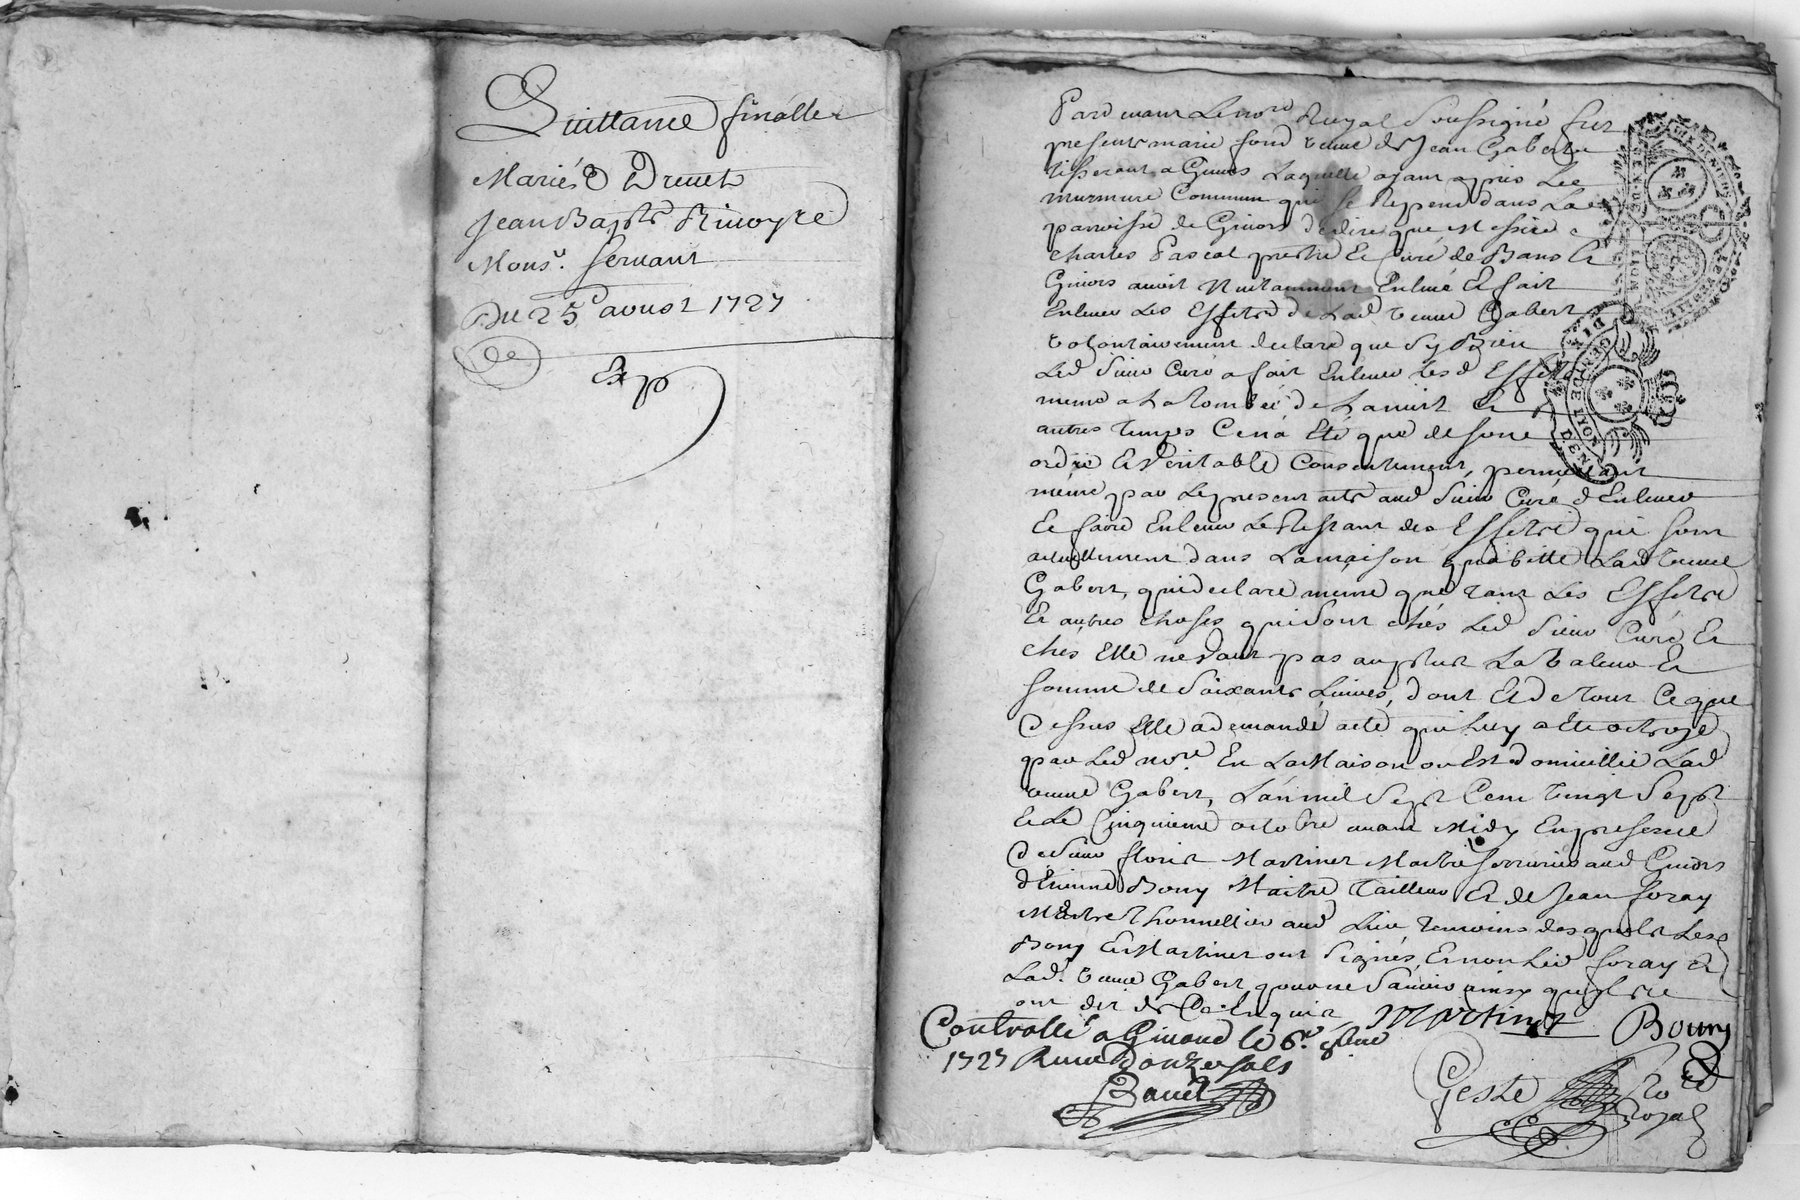 Quittance finalle
Mariée Drevet
Jean Bapte Rivoyre
Monsr. Servant
Du 25e aoust 1727
de
Exp
Pardevant Le nore Royal Soussigné fut
presente marie fond veuve de Jean Gabert
tisserant a Givors Laquelle ajant apris Le
murmure Commun qui se Repend dans La
parroisse de Givors de dire que Messire
charles Pascal prestre Et Curé de Bans Et
Givors avoit Nuitamment Enlevé Et fait
Enlever Les Effets de Lad veuve Gabert
volontairement declare que Sy Bien
Led Sieur Curé a fait Enlever Lesd Effets
meme a La tombée de La nuit Et
autres temps Cena Eté que de son
ordre Et veritable Consentement, permettant
meme par Le present acte aud Sieur Curé d Enlever
Et faire Enlever Le Restant des Effets qui sont
actuellement dans La maison qu habitte Lad veuve
Gabert, qui declare meme que tant Les Effets
Et autres choses qui sont chés Led Sieur Curé Et
chés Elle ne vaut pas au plus La valeur Et
somme de Soixante Livres, dont Et de tout Ce que
Dessus Elle a demandé acte qui Luy a Eté octroyé
par Led nore En La Maison ou Est domicillié Lad
veuve Gabert, L'an mil Sept Cent vingt Sept
Et Le Cinquieme octobre avant Midy En presence
De Sieur florit Martinet Maitre serrurier aud Givors
d'Etienne Bony Maitre Tailleur Et de Jean foray
Maitre Thonnellier aud Lieu temoins desquels Les
Bony Et Martinet ont Signés, Et non Led foray Et
Lad. veuve Gabert pour ne Savoir ainsy qu'ils
ont dit de Ce Enquis
Martinet Bouny
Controllé a Givors le 6e 8bre
1727 Reçu douze sols
Bauet
Geste no Royal
GEN. DE LYON
GEN DE LYON